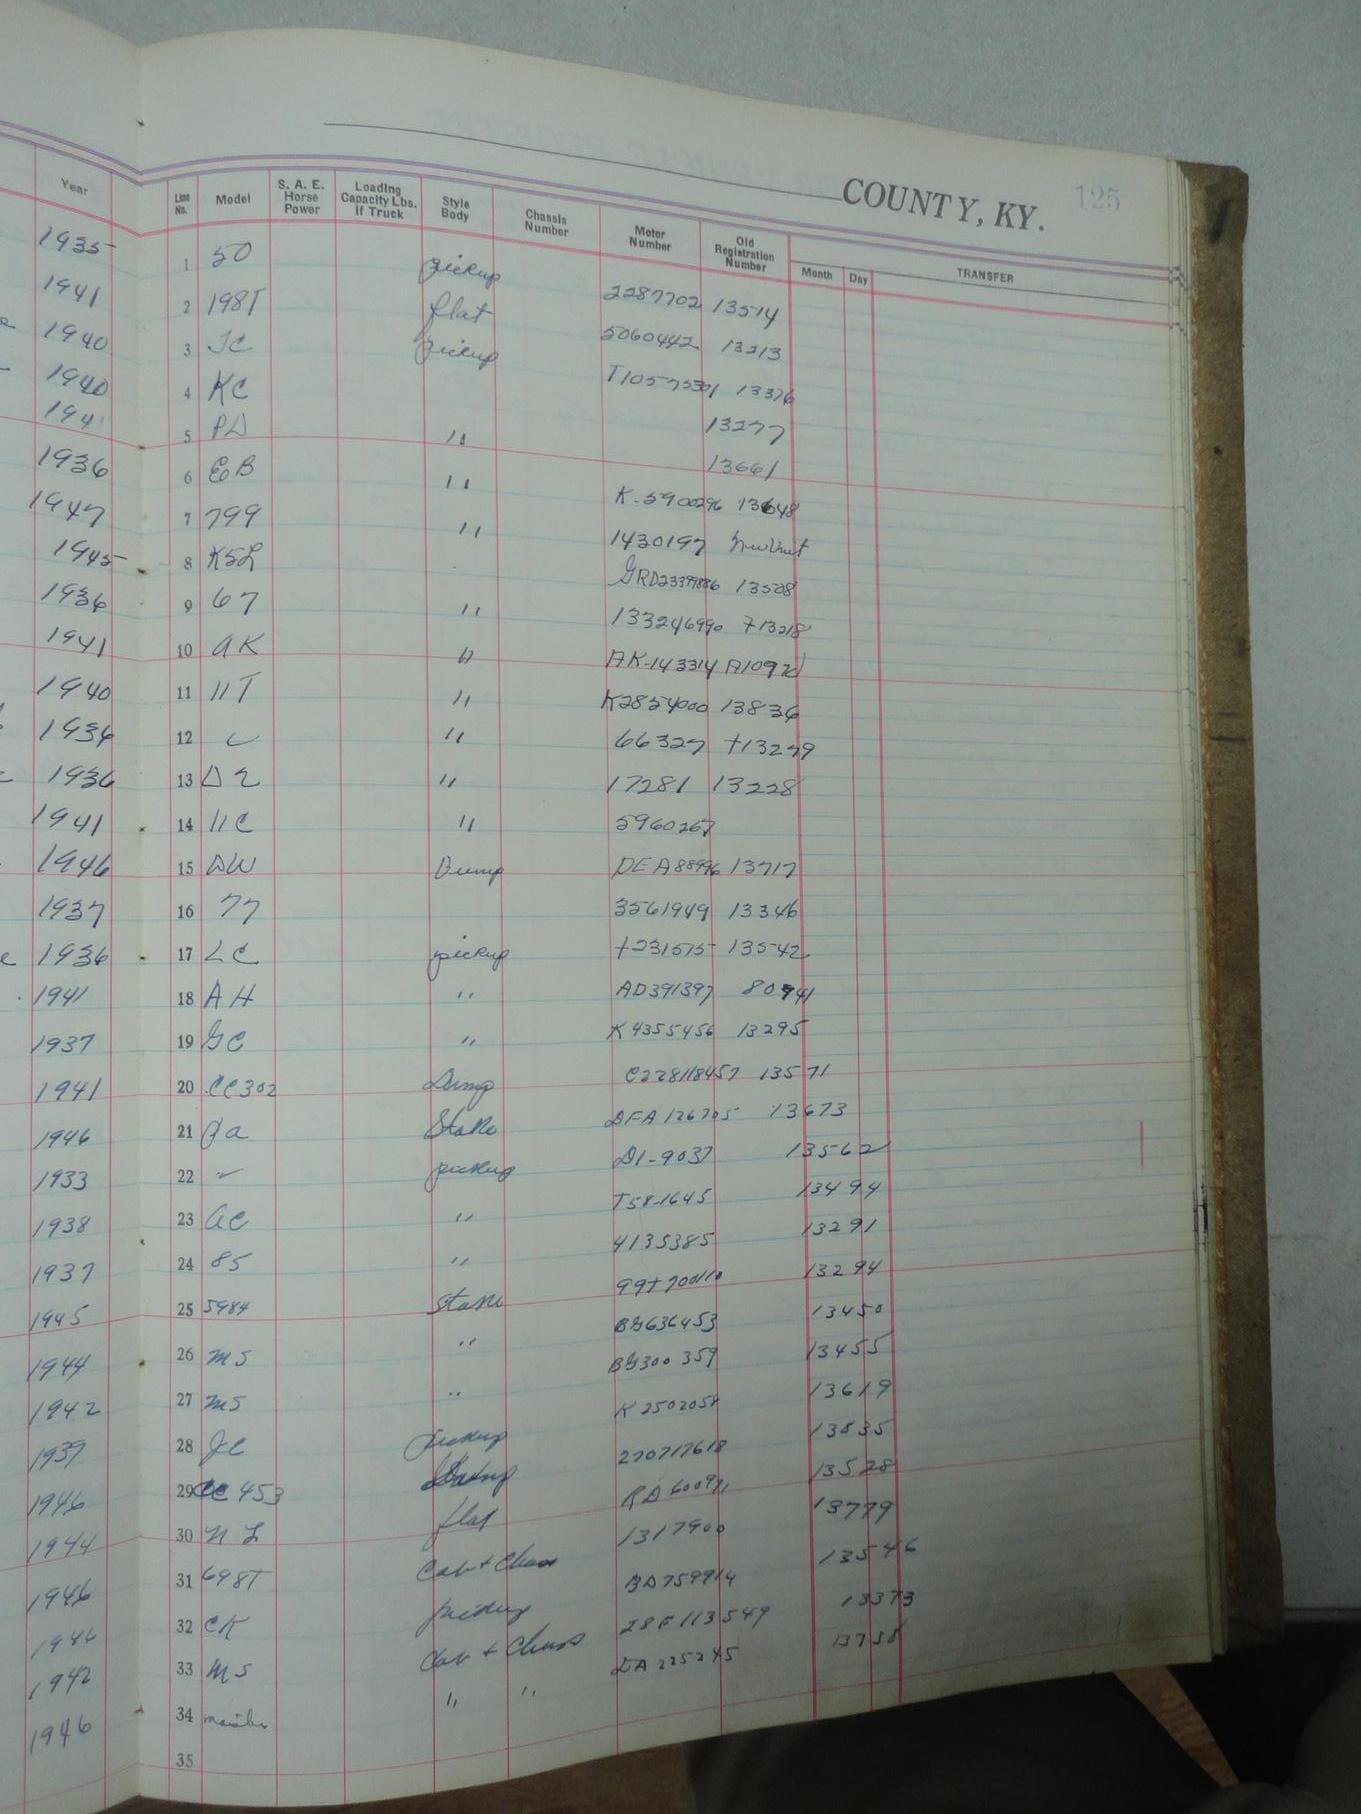 COUNTY, KY. 125
Year Line No. Model S. A. E. Horse Power Loading Capacity Lbs. If Truck Style Body Chassis Number Motor Number Old Registration Number Month Day TRANSFER
1935 1 50 pickup 2287702 13514
1941 2 198T flat 5060442 13213
1940 3 JC pickup T1057530 13376
1940 4 KC 13277
1941 5 PD " 13661
1936 6 EB " K-5900296 13648
1947 7 799 " 1430197 New Unit
1945 8 K5L GRD2339886 13508
1936 9 67 " 133246990 T13218
1941 10 AK " AK-143314 A1092
1940 11 11T " K2854000 13836
1936 12 " 66327 T13279
1936 13 D2 " 17281 13228
1941 14 11C " 5960267
1946 15 DW Dump DEA88996 13717
1937 16 77 3561949 13346
1936 17 LC pickup T231575 13542
1941 18 AH " AD391397 80941
1937 19 GC " K4355456 13295
1941 20 CC302 Dump C228118457 13571
1946 21 Ja Stake DFA126705 13673
1933 22 pickup D1-9037 13562
1938 23 AC " T58-1645 13494
1937 24 85 " 4135385 13291
1945 25 5984 Stake 99T700110 13294
1944 26 MS " BG636453 13450
1942 27 MS " BG300359 13455
1939 28 JC pickup K2502058 13619
1946 29 CC453 270717618 13535
1944 30 NL flat RD60091 13528
1946 31 698T Cab + Chass 1317900 13779
1946 32 CK pickup BD759914 13546
1942 33 MS Cab + Chass 28F113549 13373
1946 34 " " EA225245 13738
35